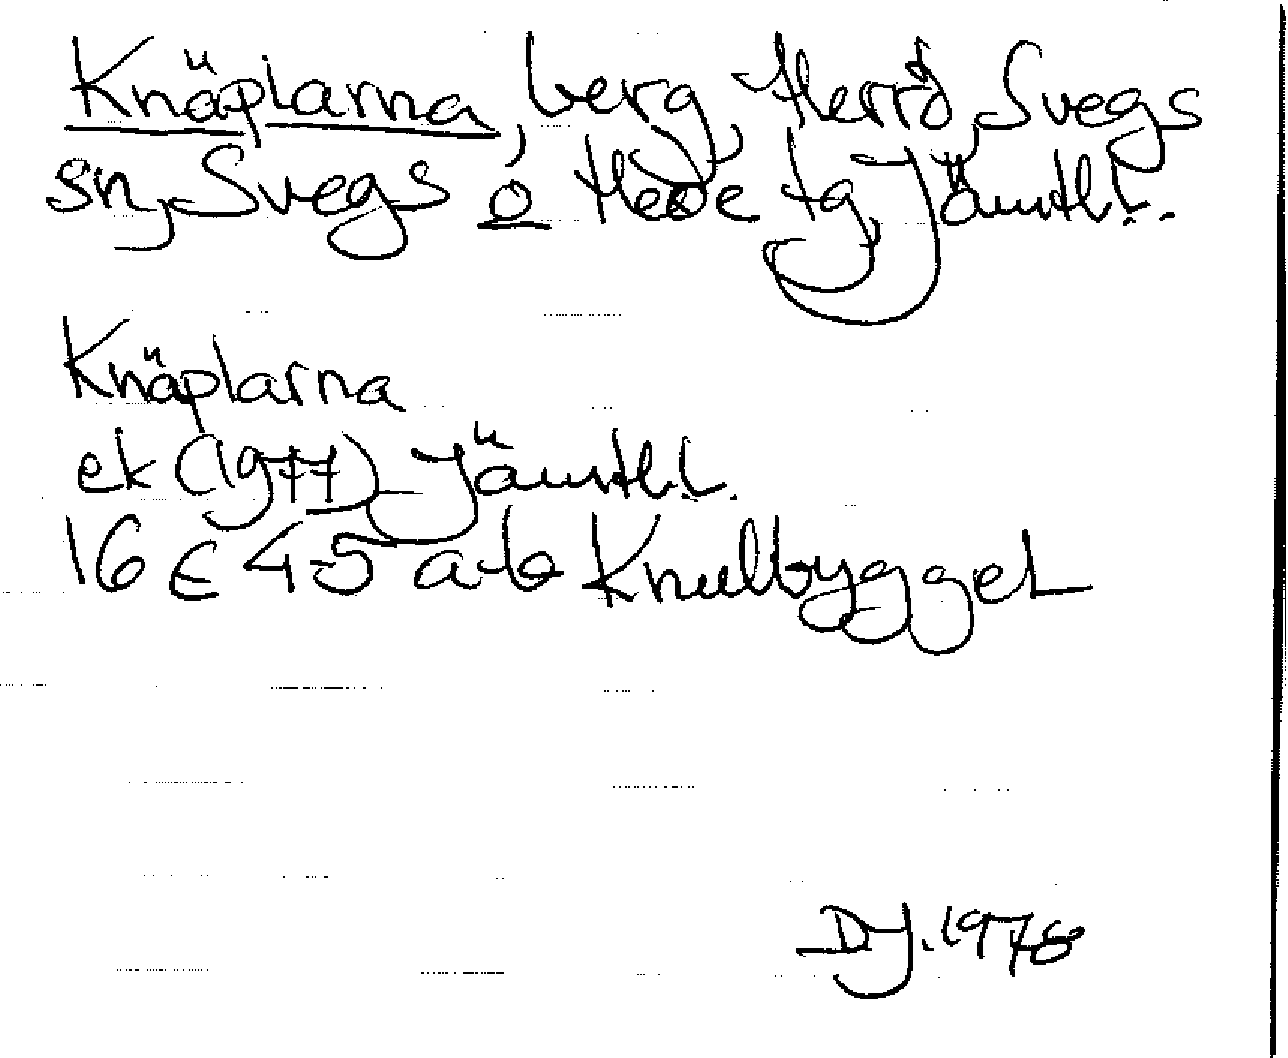 Knäplarna, berg, Herrö, Svegs
sn, Svegs o Hede tg, Jämtl.l.
Knäplarna
ek (1977) Jämtl.l.
16 E 4-5 a-b Knullbygget
DJ. 1978